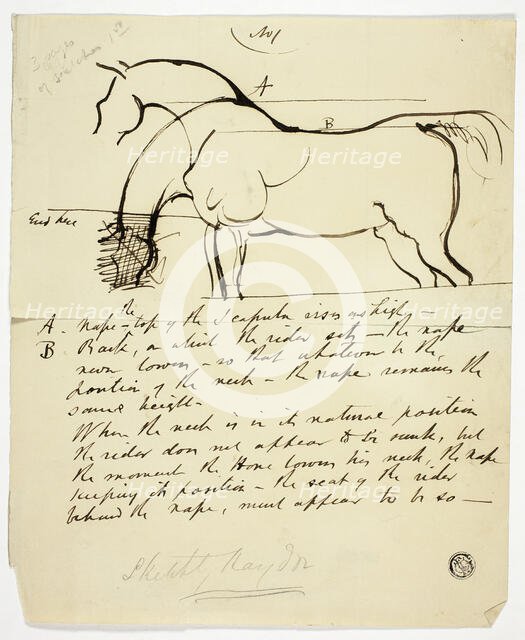 No 1
3 pages
of sketches 1st
A
B
End here
A - the Nape - top of the Scapula rises as high -
B Back, on which the rider sits - the nape
never lowers - so that whatever be the
position of the neck - the nape remains the
same height -
When the neck is in its natural position
the rider does not appear to be sunk, but
the moment the Horse lowers his neck, the nape
keeping its position - the seat of the rider
behind the nape, must appear to be so -
Sketch by Haydon
Heritage